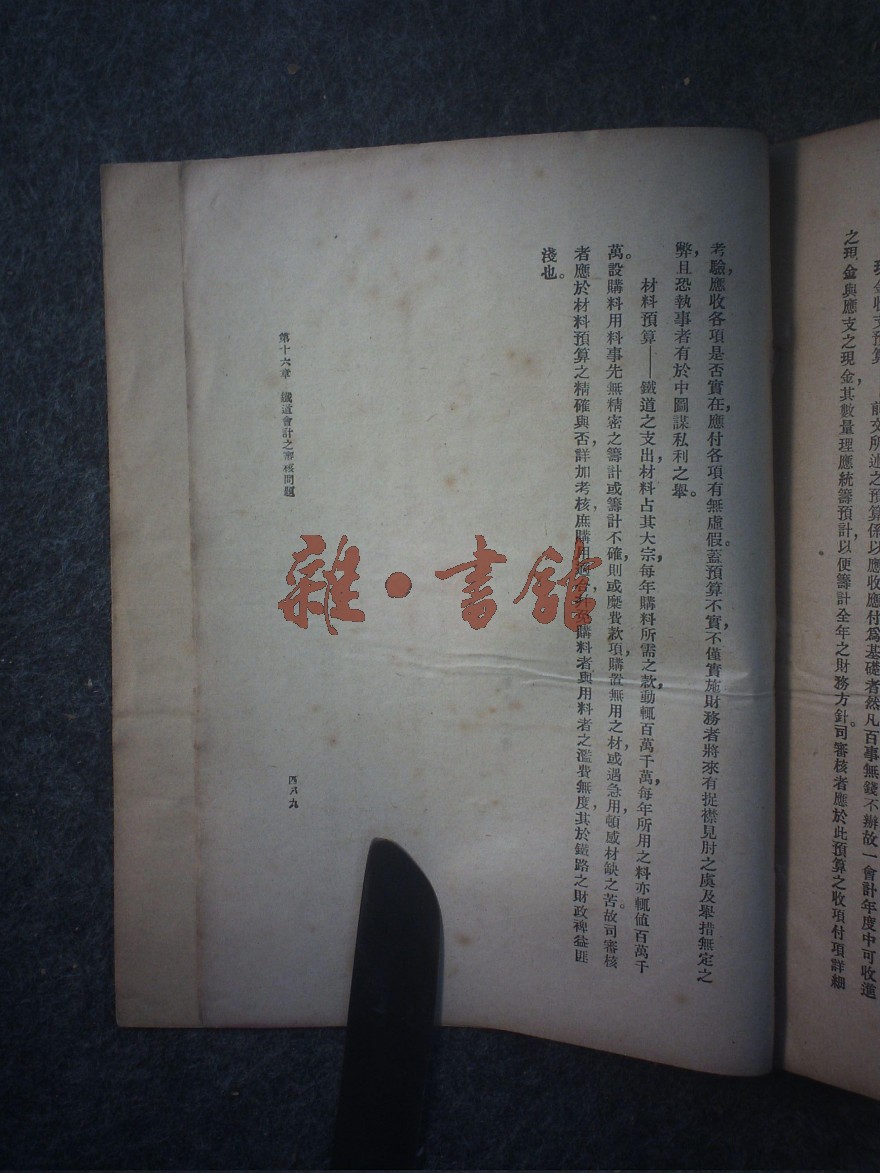 之現金與應支之現金，其數量理應統籌預計，以便籌計全年之財務方針。司審核者應於此預算之收項付項詳細
考驗，應收各項是否實在，應付各項有無虛假。蓋預算不實，不僅實施財務者將來有捉襟見肘之虞及舉措無定之
弊，且恐執事者有於中圖謀私利之舉。
材料預算——鐵道之支出，材料占其大宗，每年購料所需之款，動輒百萬千萬，每年所用之料，亦輒值百萬千
萬。設購料用料事先無精密之籌計，或籌計不確，則或縻費款項，購置無用之材，或遇急用，頓感材缺之苦。故司審核
者應於材料預算之精確與否，詳加考核，庶購用適合，購料者與用料者之濫費無度，其於鐵路之財政裨益匪
淺也。
第十六章　鐵道會計之審核問題
四八九
雜·書館